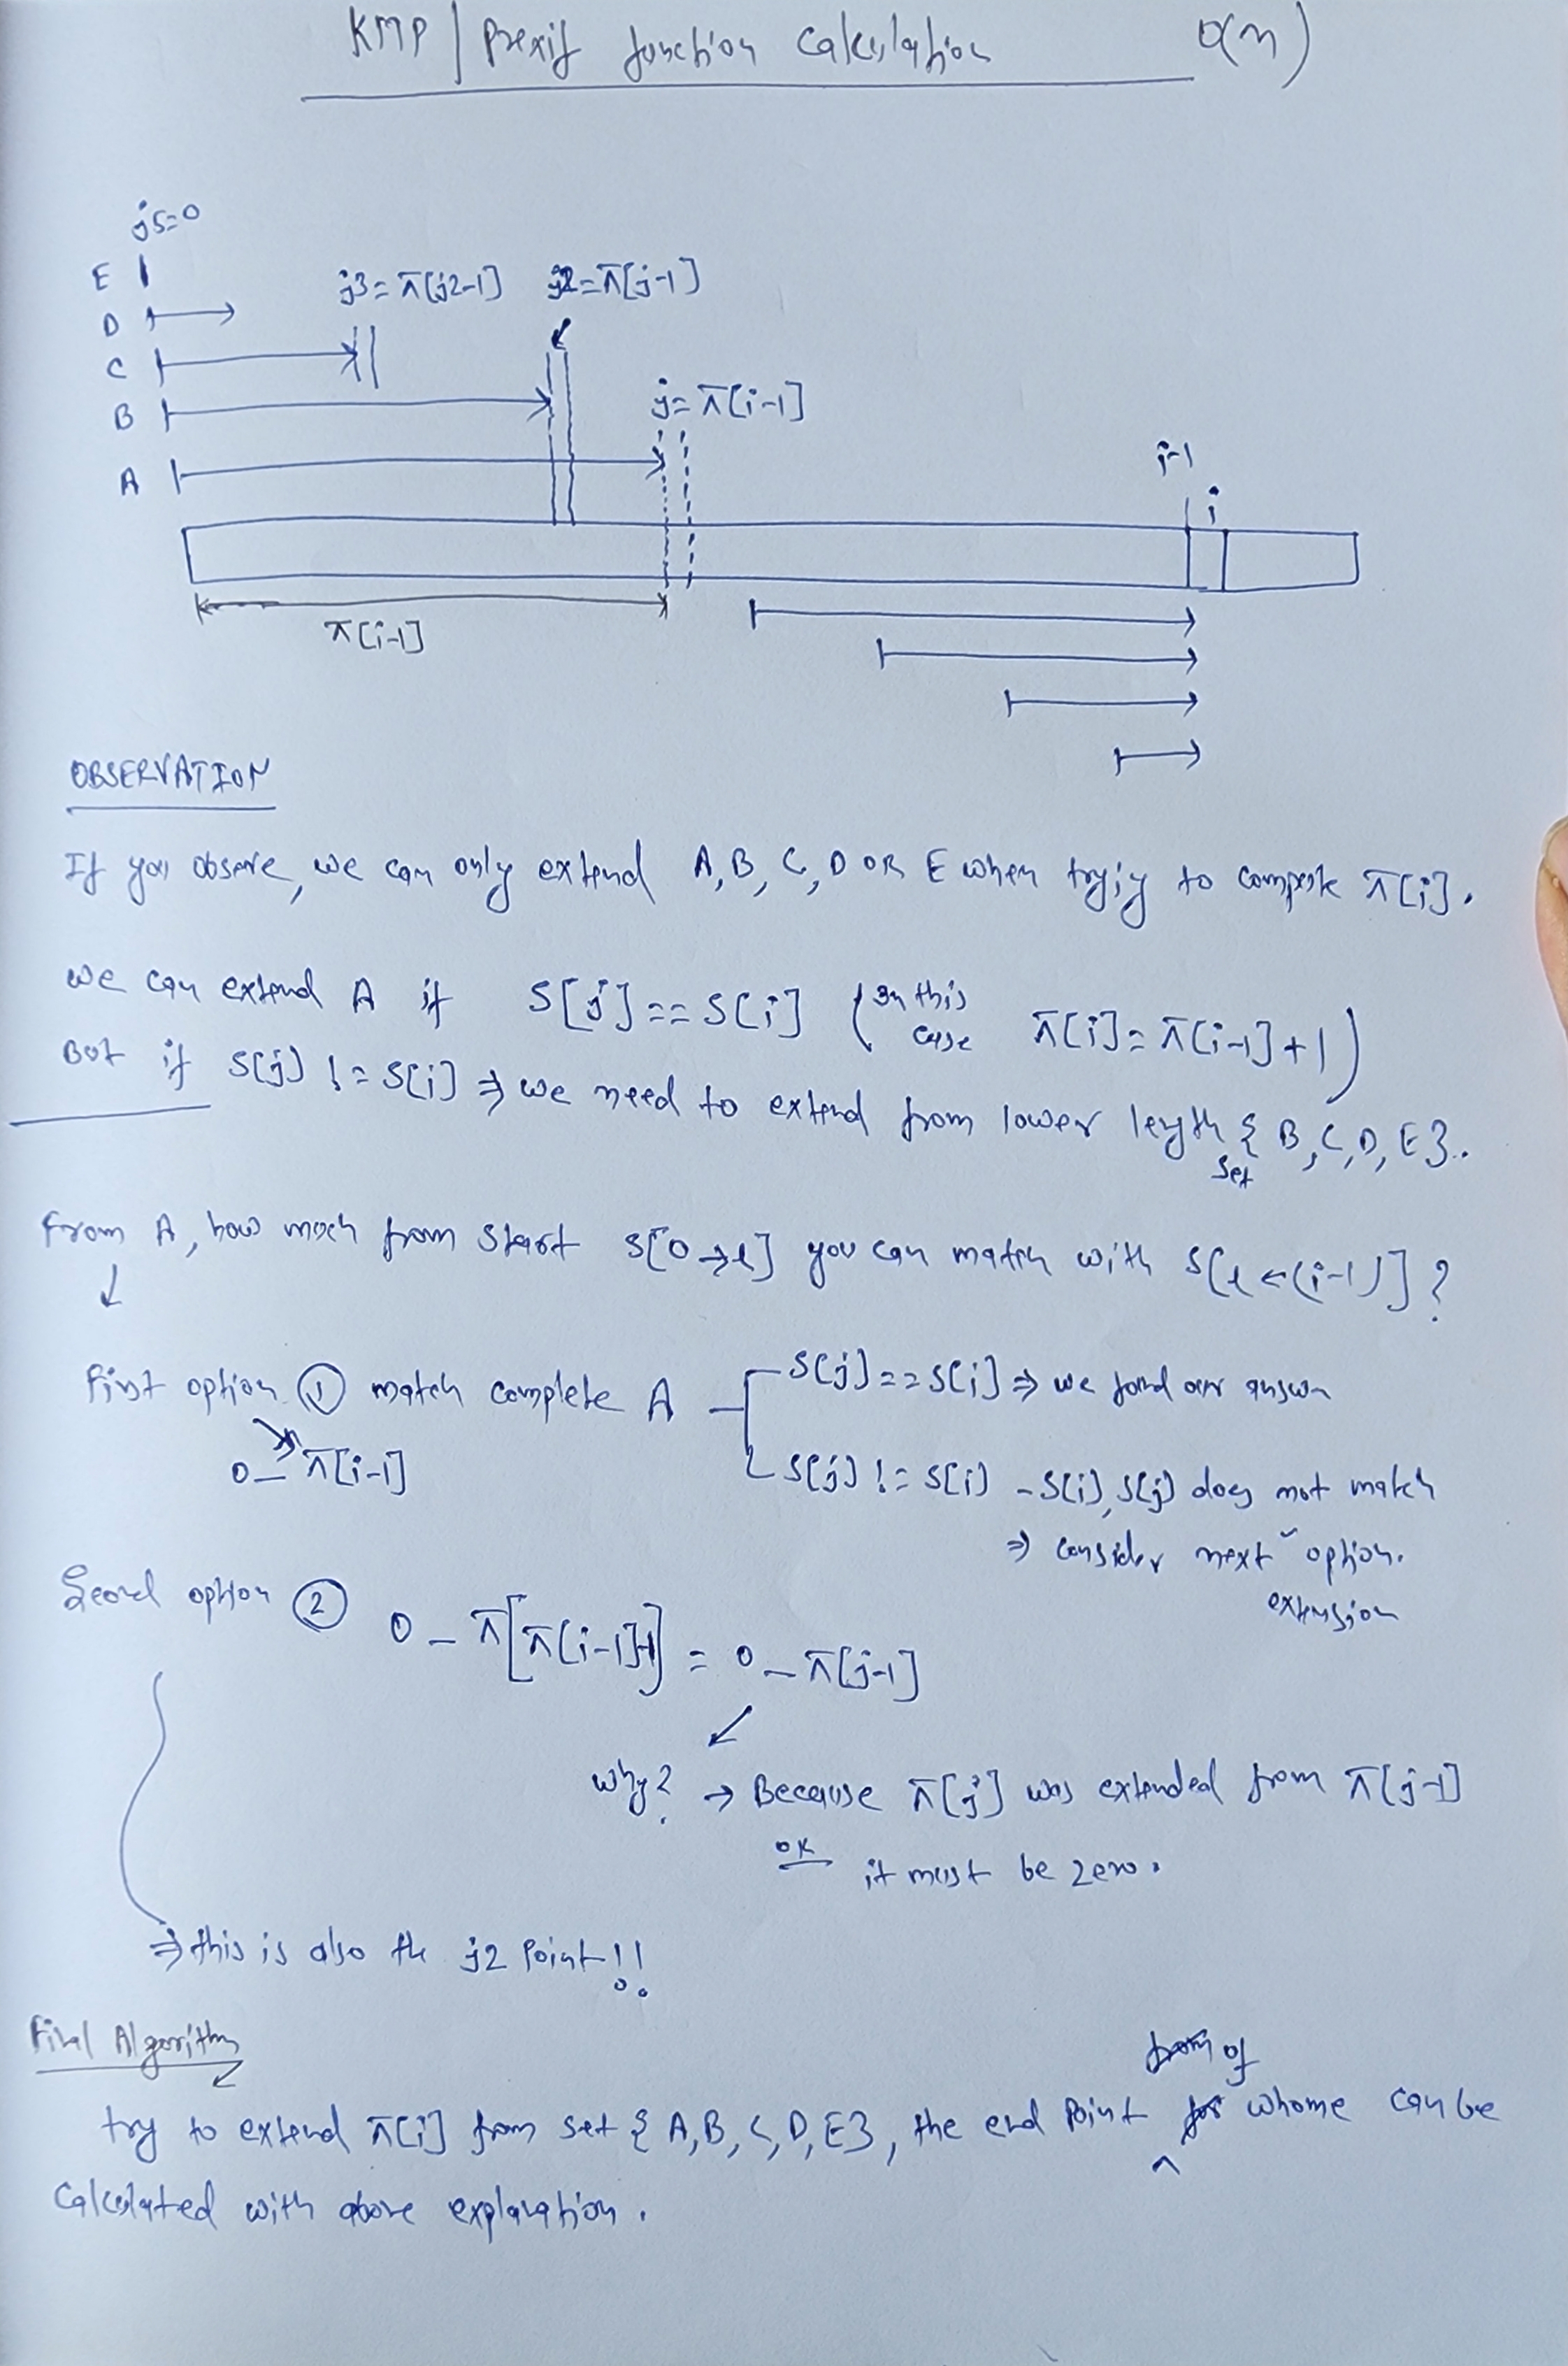 KMP | Prexif function calculation O(n)
j5=0
E
j3=π[j2-1] j2=π[j-1]
D
C
B
j=π[i-1]
A
i-1
i
π[i-1]
OBSERVATION
If you observe, we can only extend A,B,C,D OR E when tryig to compute π[i].
we can extend A if S[j]==S[i] (In this case π[i]=π[i-1]+1)
But if S[j] != S[i] ⇒ we need to extend from lower length set { B,C,D,E}.
From A, how much from start S[0→l] you can match with S[l←(i-1)]?
↓
First option ① match complete A
S[j]==S[i] ⇒ we found our answer
0_π[i-1]
S[j] != S[i] - S[i], S[j] does not match
⇒ consider next option.
extension
Second option ② 0_π[π[i-1]-1] = 0_π[j-1]
why? → Because π[j] was extended from π[j-1]
or it must be zero.
⇒ this is also the j2 point!!
Final Algorithm
try to extend π[i] from set { A,B,C,D,E}, the end point of whome can be
calculated with above explanation.